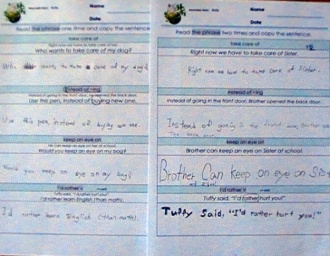 Name
Date
Read the phrase one time and copy the sentence.
take care of
Right now we have to take care of her.
Who wants to take care of my dog?
Who wants to take care of my dog?
Instead of ~ing
Instead of going in the front door, he opened the back door.
Use this pen, instead of buying new one.
Use this pen, instead of buying new one.
keep an eye on
Would you keep an eye on my bag?
Would you keep an eye on my bag?
I'd rather
Tuffy said, "I'd rather hurt you!"
I'd rather learn English, than math.
I'd rather learn English (than math).
Name
Date
Read the phrase two times and copy the sentence.
take care of
Right now we have to take care of Sister.
Right now we have to take care of Sister.
Instead of ~ing
Instead of going in the front door, Brother opened the back door.
Instead of going in the front door, Brother
keep an eye on
Brother can keep an eye on Sister at school.
Brother Can keep an eye on Sis
I'd rather
Tuffy said, "I'd rather hurt you!"
Tuffy Said, "I'd rather hurt you!"